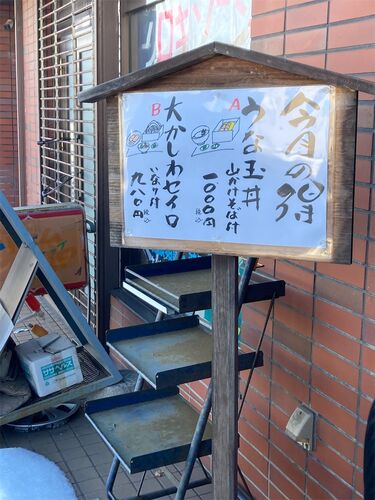 今月の得
A
うな玉丼
山かけそば付
一〇〇〇円
税込
B
大かしわセイロ
いなり付
九八〇円
税込